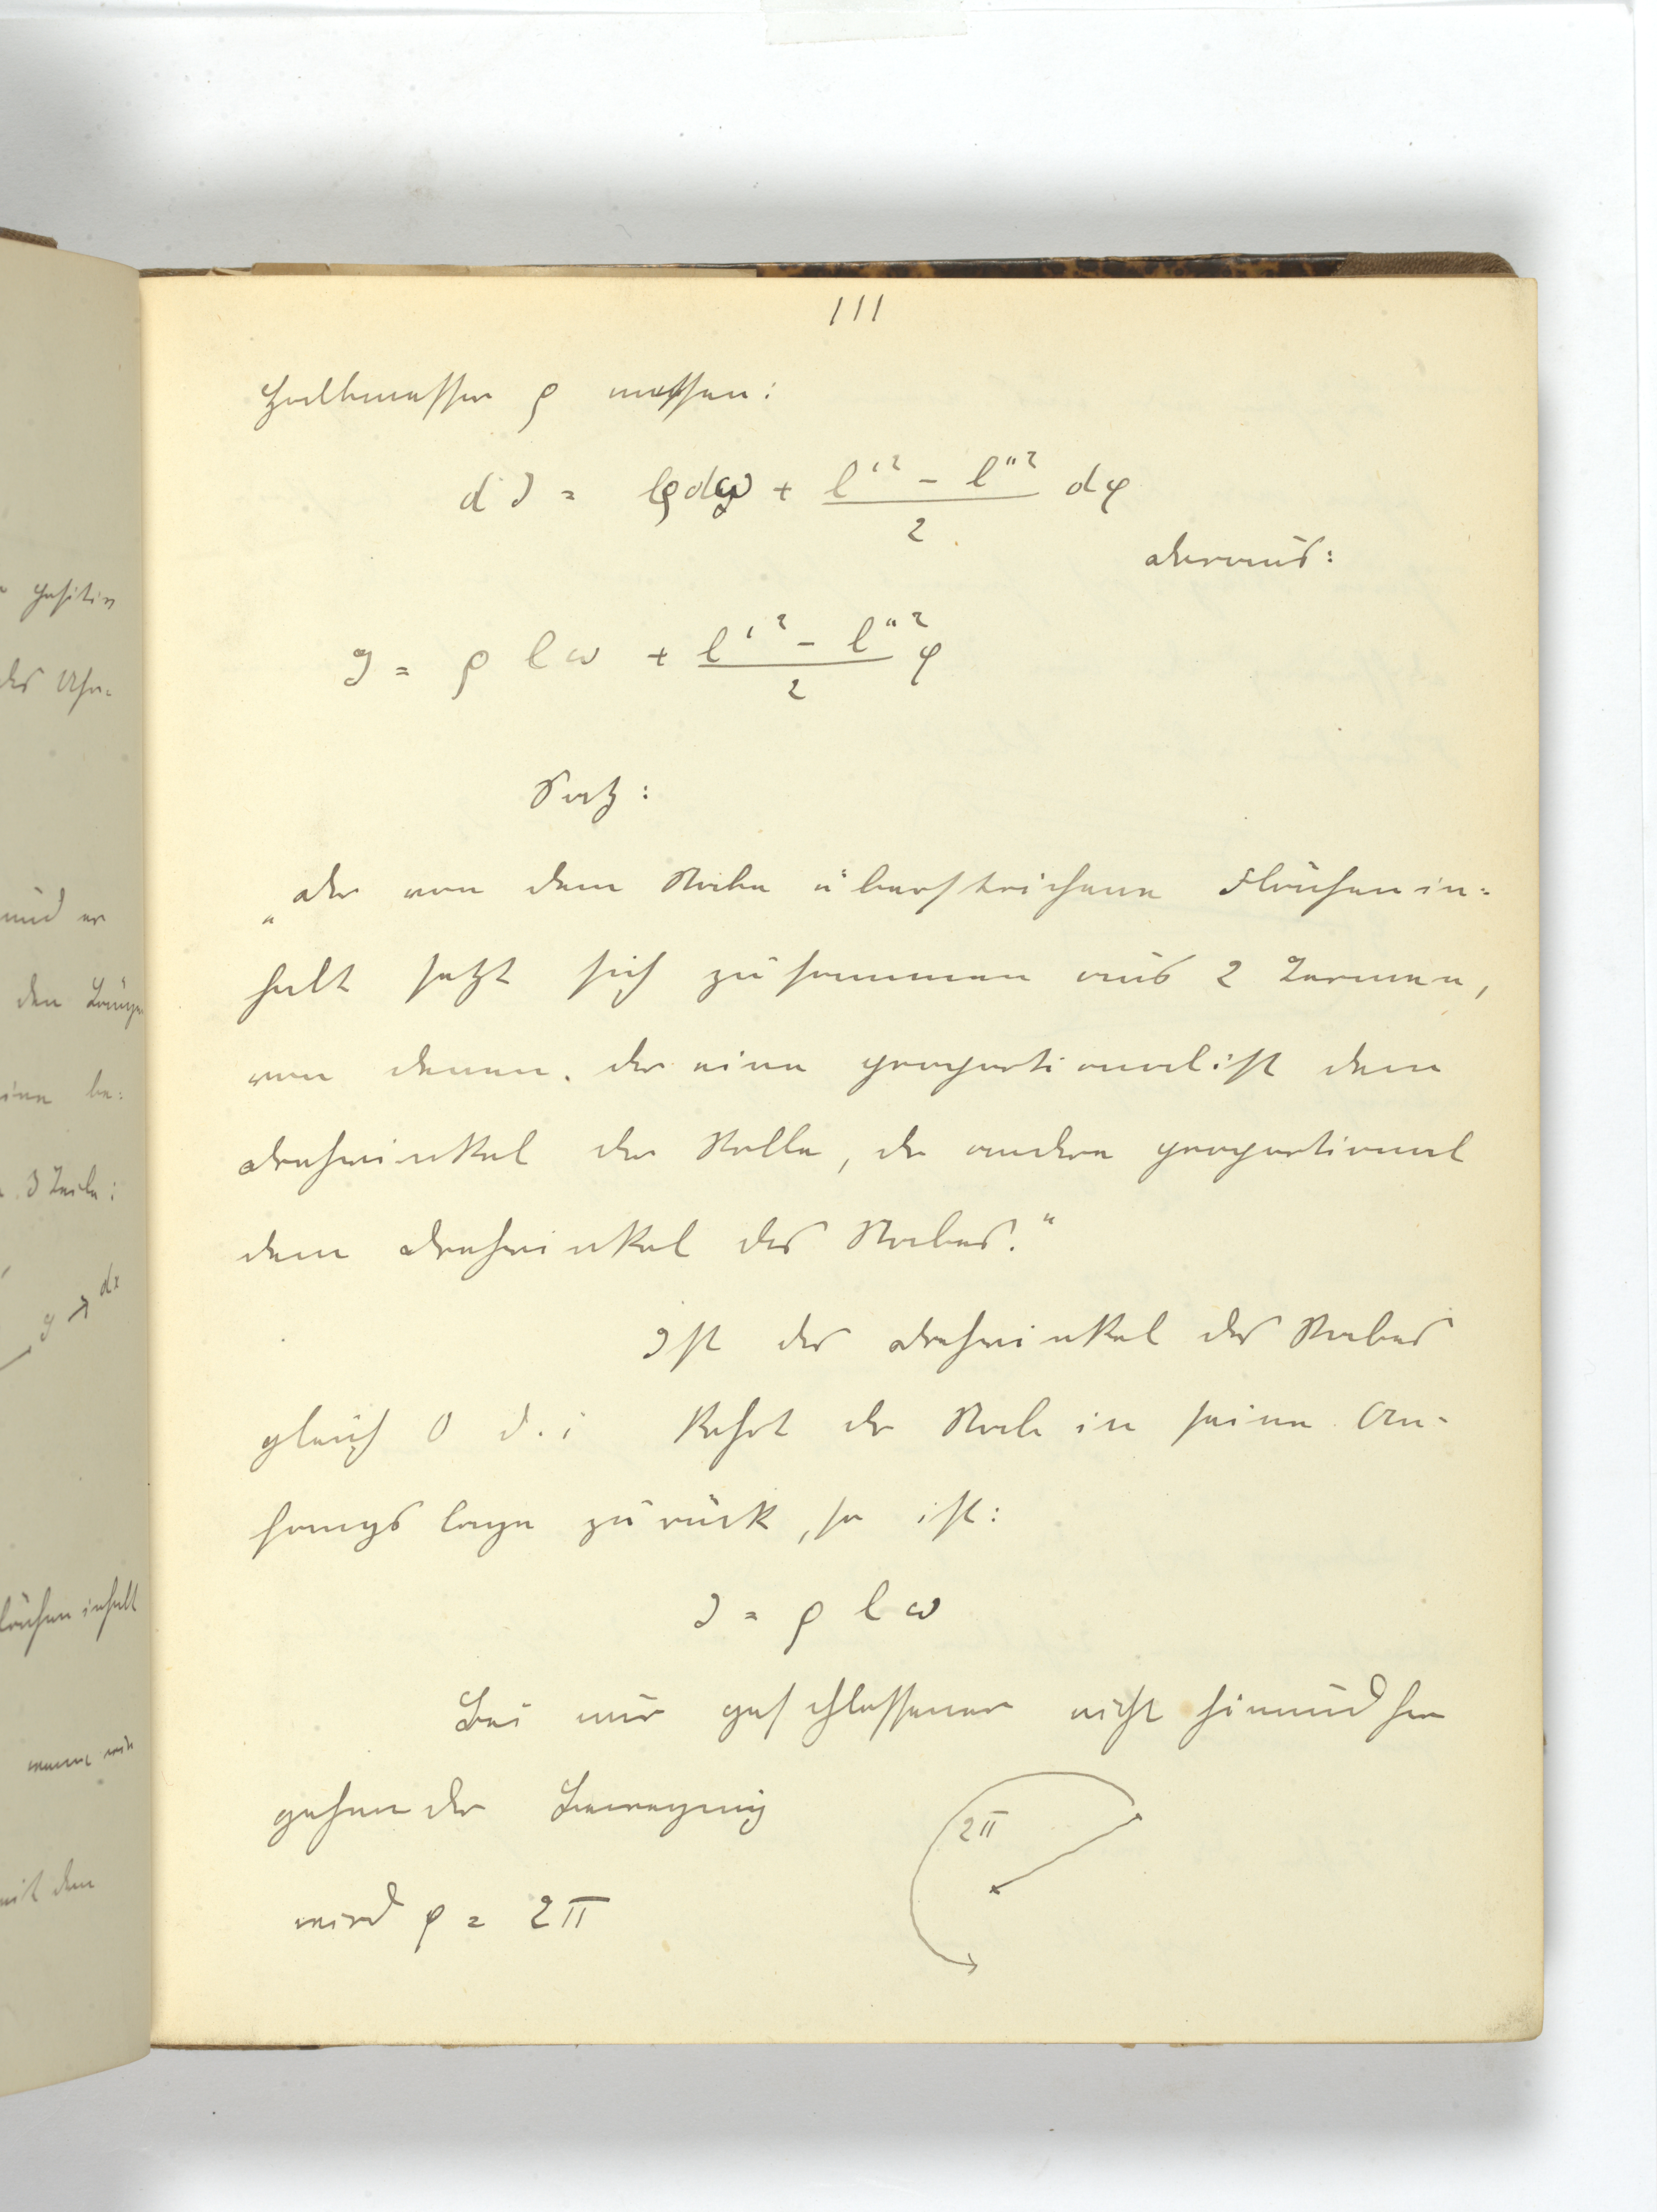 111
Halbmesser ρ messen:
dJ = lρdω + (l'² - l''²)/2 dφ
daraus:
J = ρ l ω + (l'² - l''²)/2 φ
Satz:
„Der von dem Stabe überstrichene Flächenin=
halt setzt sich zusammen aus 2 Termen,
von denen der eine proportional ist dem
Drehwinkel der Rolle, der andere proportional
dem Drehwinkel des Stabes.“
Ist der Drehwinkel des Stabes
gleich 0 d. i kehrt der Stab in seine An-
fangslage zurück, so ist:
J = ρ l ω
Bei nur geschlossener nicht hinundher
gehender Bewegung
wird φ = 2π
2π
positiv
des Uhr=
und er
den Länge
eine be=
3 Teile:
y dx
lächeninhalt
mit dem